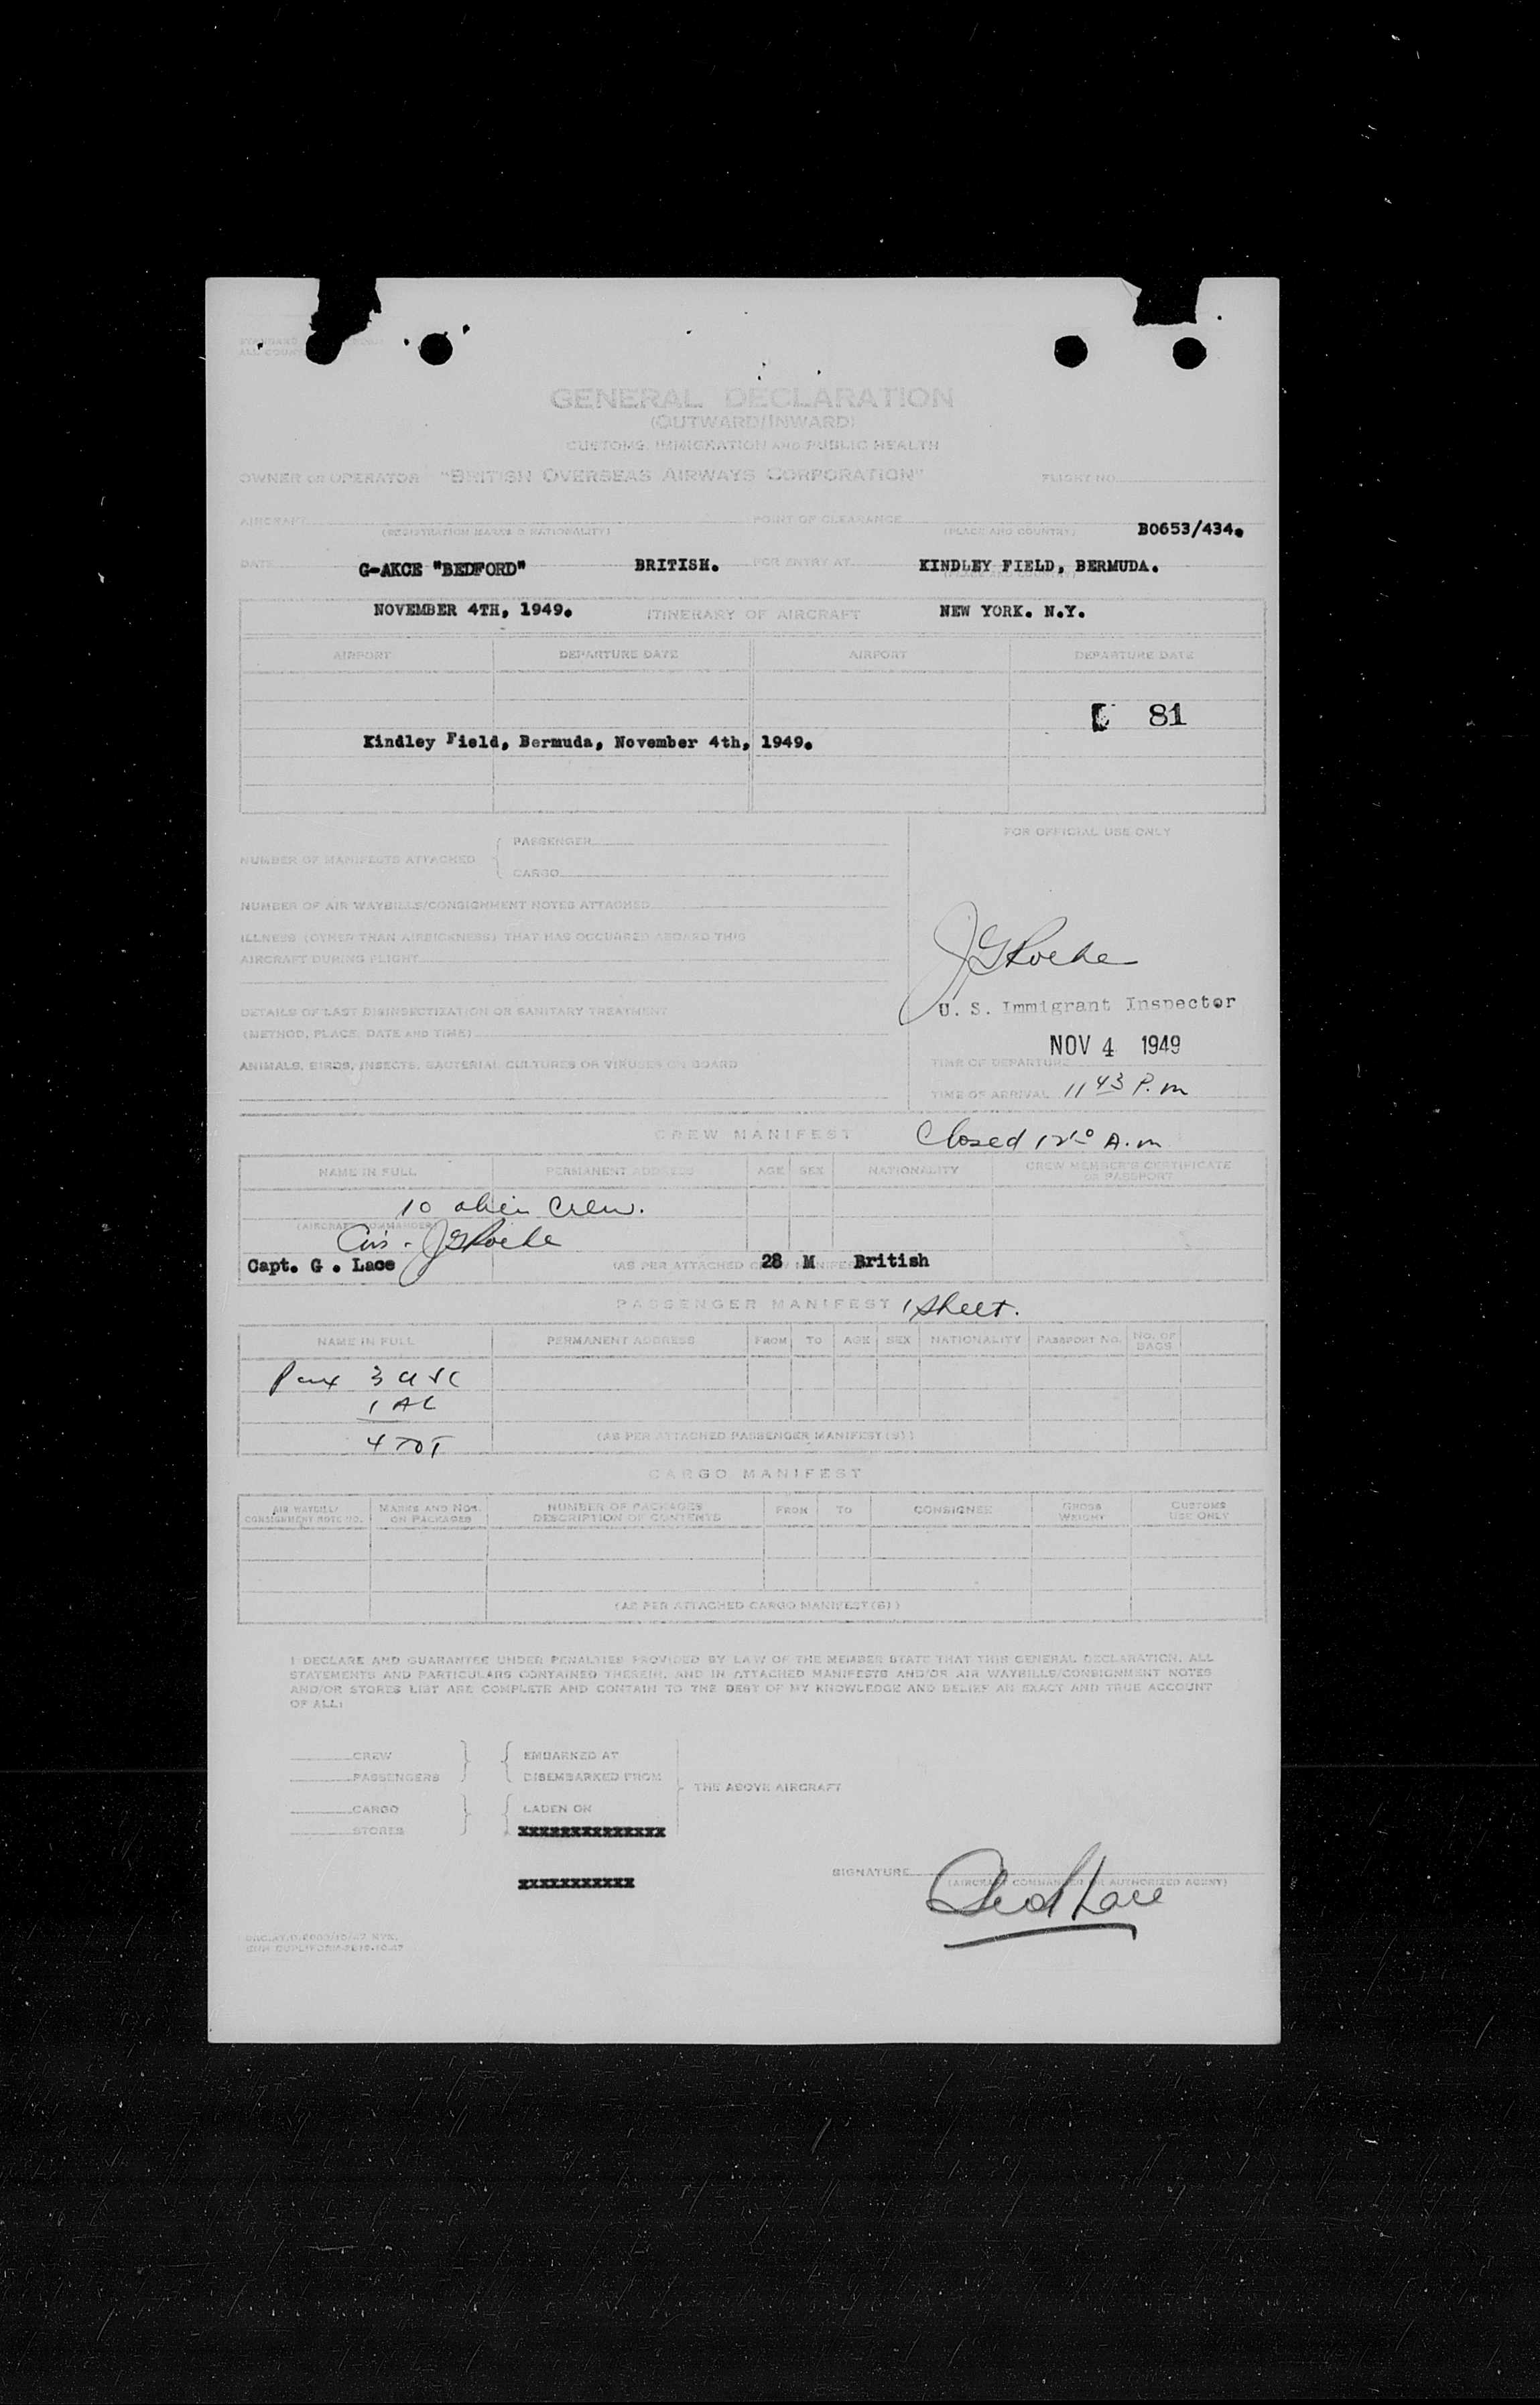 GENERAL DECLARATION
(OUTWARD/INWARD)
CUSTOMS, IMMIGRATION AND PUBLIC HEALTH
OWNER OR OPERATOR "BRITISH OVERSEAS AIRWAYS CORPORATION" FLIGHT NO.
AIRCRAFT POINT OF CLEARANCE
(REGISTRATION MARKS & NATIONALITY) (PLACE AND COUNTRY) BO653/434.
DATE G-AKCE "BEDFORD" BRITISH. FOR ENTRY AT KINDLEY FIELD, BERMUDA.
NOVEMBER 4TH, 1949. ITINERARY OF AIRCRAFT NEW YORK. N.Y.
AIRPORT DEPARTURE DATE AIRPORT DEPARTURE DATE
81
Kindley Field, Bermuda, November 4th, 1949.
FOR OFFICIAL USE ONLY
NUMBER OF MANIFESTS ATTACHED PASSENGER
CARGO
NUMBER OF AIR WAYBILLS/CONSIGNMENT NOTES ATTACHED
ILLNESS (OTHER THAN AIRSICKNESS) THAT HAS OCCURRED ABOARD THIS
AIRCRAFT DURING FLIGHT
J G Roche
U. S. Immigrant Inspector
DETAILS OF LAST DISINSECTIZATION OR SANITARY TREATMENT
(METHOD, PLACE, DATE AND TIME)
NOV 4 1949
ANIMALS, BIRDS, INSECTS, BACTERIAL CULTURES OR VIRUSES ON BOARD
TIME OF DEPARTURE
TIME OF ARRIVAL 11 43 P.m
CREW MANIFEST Closed 12 10 A.m
NAME IN FULL PERMANENT ADDRESS AGE SEX NATIONALITY CREW MEMBER'S CERTIFICATE
OR PASSPORT
10 alien crew.
(AIRCRAFT COMMANDER)
J G Roche
Capt. G . Lace (AS PER ATTACHED CREW MANIFEST) 28 M British
PASSENGER MANIFEST 1 sheet.
NAME IN FULL PERMANENT ADDRESS FROM TO AGE SEX NATIONALITY PASSPORT NO. NO. OF
BAGS
Pax 3 USC
1 AC
4 TOT (AS PER ATTACHED PASSENGER MANIFEST(S))
CARGO MANIFEST
AIR WAYBILL/
CONSIGNMENT NOTE NO. MARKS AND NOS.
ON PACKAGES NUMBER OF PACKAGES
DESCRIPTION OF CONTENTS FROM TO CONSIGNEE GROSS
WEIGHT CUSTOMS
USE ONLY
(AS PER ATTACHED CARGO MANIFEST(S))
I DECLARE AND GUARANTEE UNDER PENALTIES PROVIDED BY LAW OF THE MEMBER STATE THAT THIS GENERAL DECLARATION, ALL
STATEMENTS AND PARTICULARS CONTAINED THEREIN, AND IN ATTACHED MANIFESTS AND/OR AIR WAYBILLS/CONSIGNMENT NOTES
AND/OR STORES LIST ARE COMPLETE AND CONTAIN TO THE BEST OF MY KNOWLEDGE AND BELIEF AN EXACT AND TRUE ACCOUNT
OF ALL:
CREW EMBARKED AT
PASSENGERS DISEMBARKED FROM
THE ABOVE AIRCRAFT
CARGO LADEN ON
STORES XXXXXXXXXXXXXX
XXXXXXXXXXX
SIGNATURE
(AIRCRAFT COMMANDER OR AUTHORIZED AGENT)